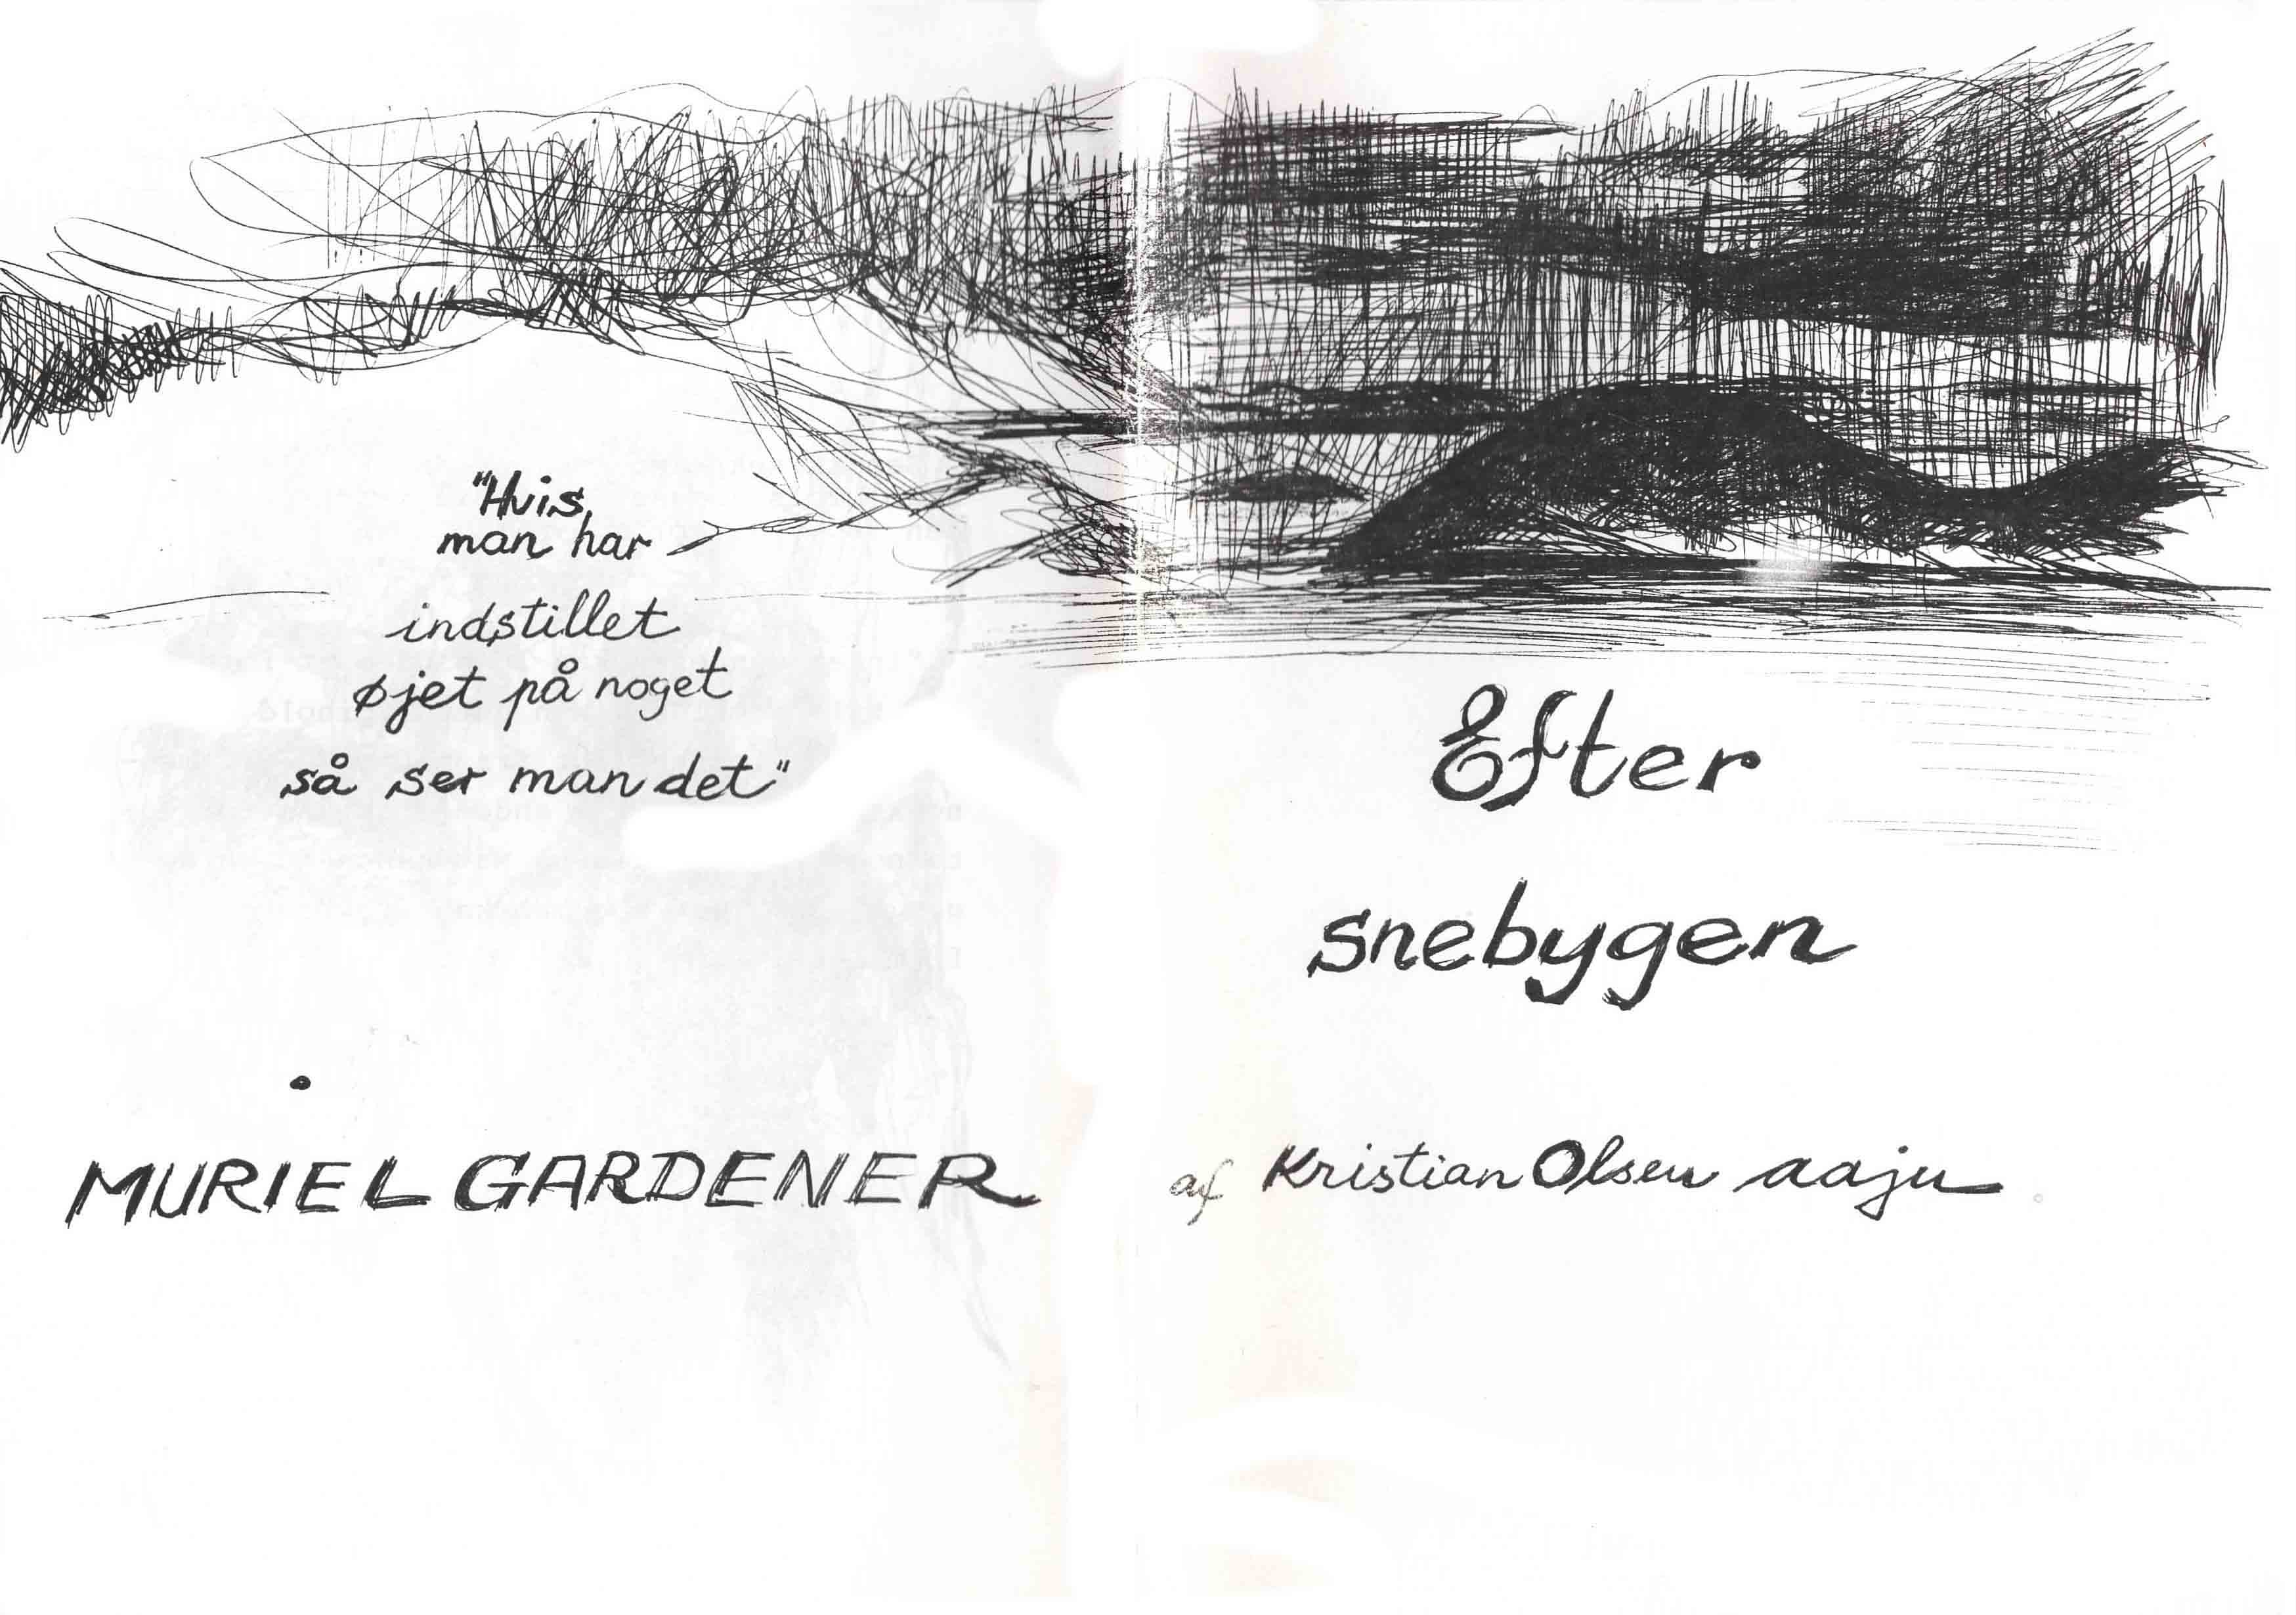 "Hvis
man har
indstillet
øjet på noget
så ser man det"
MURIEL GARDENER
Efter
snebygen
af Kristian Olsen aaju